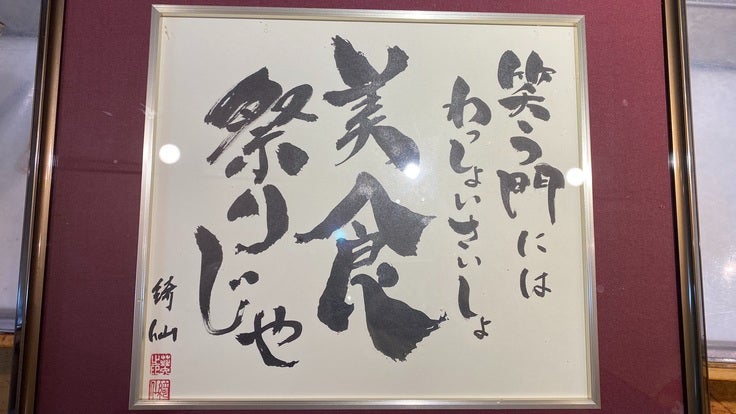 笑う門には
わっしょいさいしょ
美食
祭りじゃ
綺仙